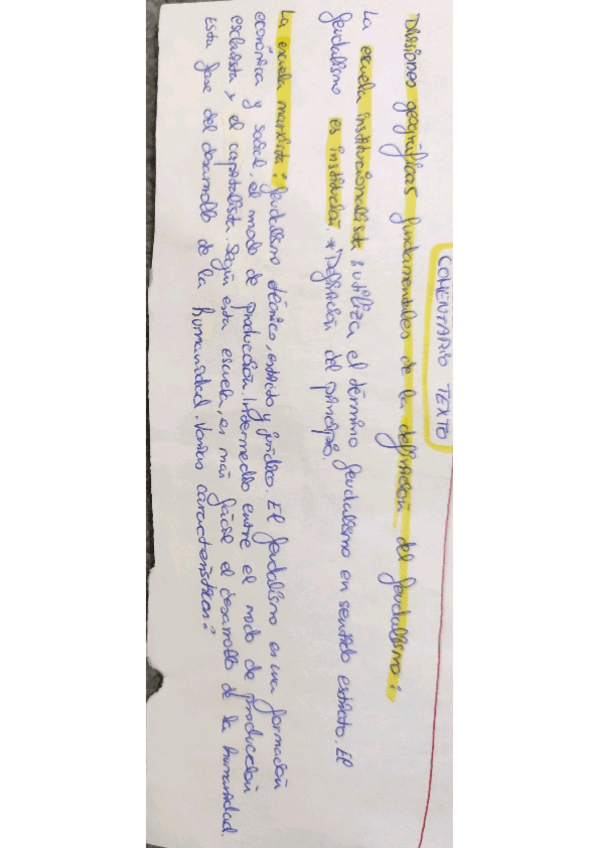 COMENTARIO TEXTO
Divisiones geográficas fundamentales de la definición del feudalismo:
La escuela institucionalista: utiliza el término feudalismo en sentido estricto. El
feudalismo es institución. *Definición del principio.
La escuela marxista: feudalismo técnico, estricto y jurídico. El feudalismo es una formación
económica y social, el modo de producción. Intermedio entre el modo de producción
esclavista y el capitalista. Según esta escuela, es más fácil el desarrollo de la humanidad.
Esta fase del desarrollo de la humanidad. Varias características: